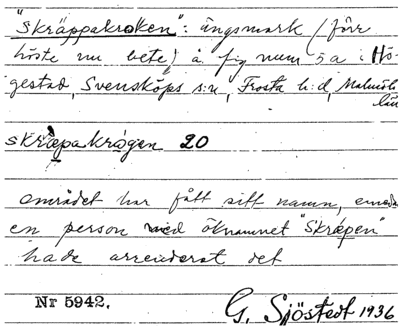 "Skräppakroken": ängsmark (förr
höste nu bete) å fig num 5a i Hö-
gestad, Svensköps s:n, Frosta h:d, Malmöh.
län
skræpakrågen 20
området har fått sitt namn, emedan
en person med öknamnet "Skræpen"
hade arrenderat det
Nr 5942.
G. Sjöstedt 1936